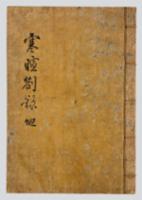 寒暄劄錄 地